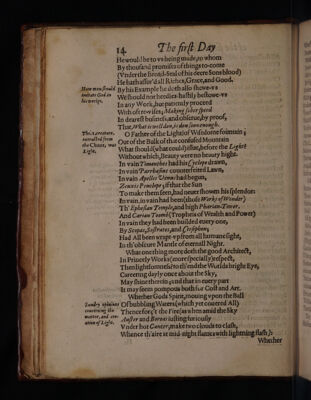 14 The first Day
He would be to vs being made, to whom
By thousand promises of things-to-come
(Vnder the Broad-Seal of his deere Sons blood)
He hath assur'd all Riches, Grace, and Good.
How men should imitate God in his works.
By his Example he doth also shewe-vs
We should not heedles-hastily bestowe-vs
In any Work, but patiently proceed
With oft re-vises, Making sober speed
In dearest business, and obserue, by proof,
That, What is well don, is don soon enough.
The creature, extracted from the Chaos, was Light.
O Father of the Light! of Wisdome fountain,
Out of the Bulk of that confused Mountain
What should (what could) issue, before the Light?
Without which, Beauty were no beauty hight.
In vain Timanthes had his Cyclope drawn,
In vain Parrhasius counterfeited Lawn,
In vain Apelles Venus had begun,
Zeuxis Penelope; if that the Sun
To make them seen, had neuer showen his splendor:
In vain, in vain had been (those Works of Wonder)
Th' Ephesian Temple, and high Pharian-Tower,
And Carian Toomb (Tropheis of Wealth and Power)
In vain they had been builded every one,
By Scopas, Sostrates, and Ctesiphon;
Had All been wrapt-vp from all humane sight,
In th' obscure Mantle of eternall Night.
What one thing more doth the good Architect,
In Princely Works (more specially) respect,
Then lightsomnes? to th' end the Worlds bright Eye,
Careering dayly once about the Sky,
May shine therein; and that in euery part
It may seem pompous both for Cost and Art.
Sundry opinions concerning the matter, and creation of Light.
Whether Gods Spirit, mouing vpon the Ball
Of bubbling Waters (which yet couered All)
Thence forç't the Fire (as when amid the Sky
Auster and Boreas iusting furiously
Vnder hot Cancer, make two clouds to clash,
Whence th' aire at mid-night flames with lightning flash):
Whether